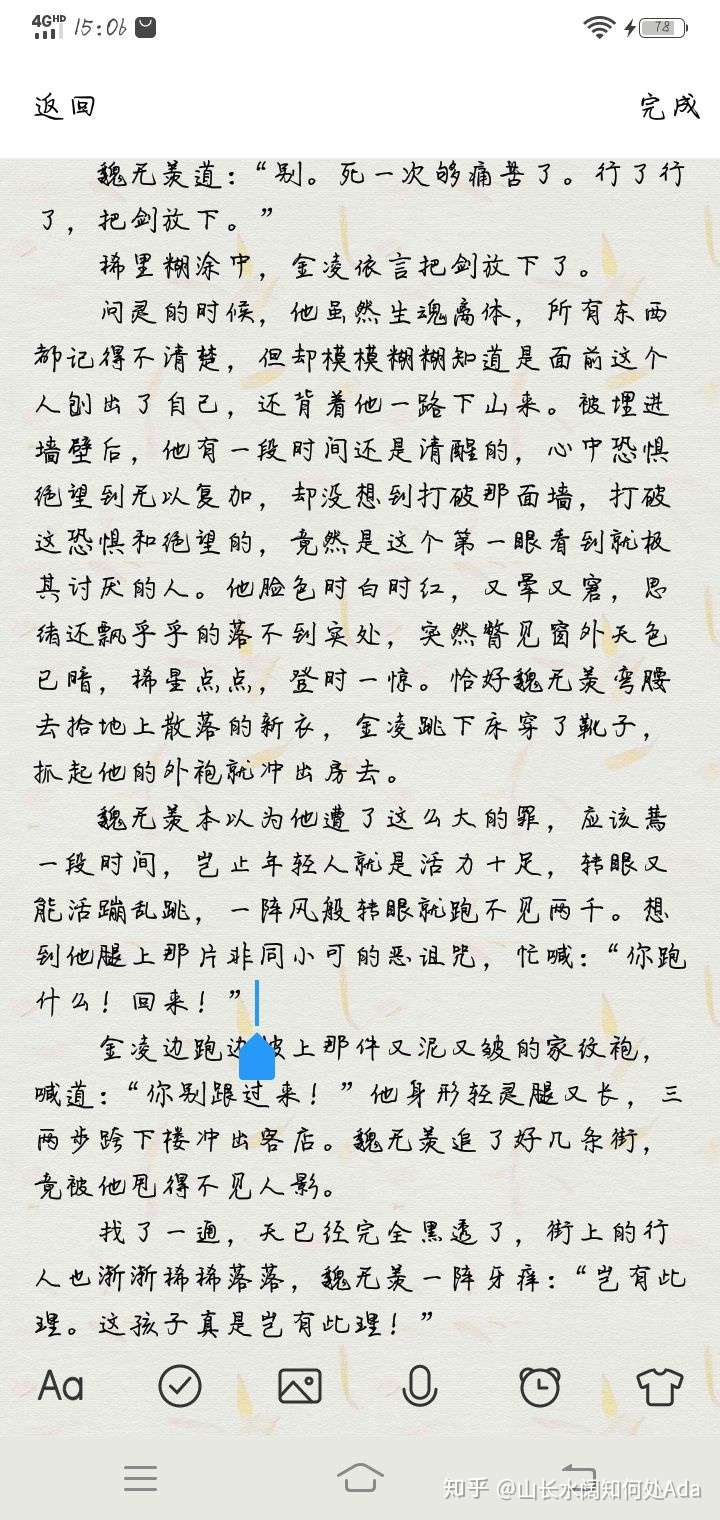 4G HD 15:06 78
返回 完成
魏无羡道：“别。死一次够痛苦了。行了行
了，把剑放下。”
稀里糊涂中，金凌依言把剑放下了。
问灵的时候，他虽然生魂离体，所有东西
都记得不清楚，但却模模糊糊知道是面前这个
人刨出了自己，还背着他一路下山来。被埋进
墙壁后，他有一段时间还是清醒的，心中恐惧
绝望到无以复加，却没想到打破那面墙，打破
这恐惧和绝望的，竟然是这个第一眼看到就极
其讨厌的人。他脸色时白时红，又晕又窘，思
绪还飘乎乎的落不到实处，突然瞥见窗外天色
已暗，稀星点点，登时一惊。恰好魏无羡弯腰
去拾地上散落的新衣，金凌跳下床穿了靴子，
抓起他的外袍就冲出房去。
魏无羡本以为他遭了这么大的罪，应该蔫
一段时间，岂止年轻人就是活力十足，转眼又
能活蹦乱跳，一阵风般转眼就跑不见两千。想
到他腿上那片非同小可的恶诅咒，忙喊：“你跑
什么！回来！”
金凌边跑边披上那件又泥又皱的家纹袍，
喊道：“你别跟过来！”他身形轻灵腿又长，三
两步跨下楼冲出客店。魏无羡追了好几条街，
竟被他甩得不见人影。
找了一通，天已经完全黑透了，街上的行
人也渐渐稀稀落落，魏无羡一阵牙痒：“岂有此
理。这孩子真是岂有此理！”
Aa
知乎 @山长水阔知何处Ada